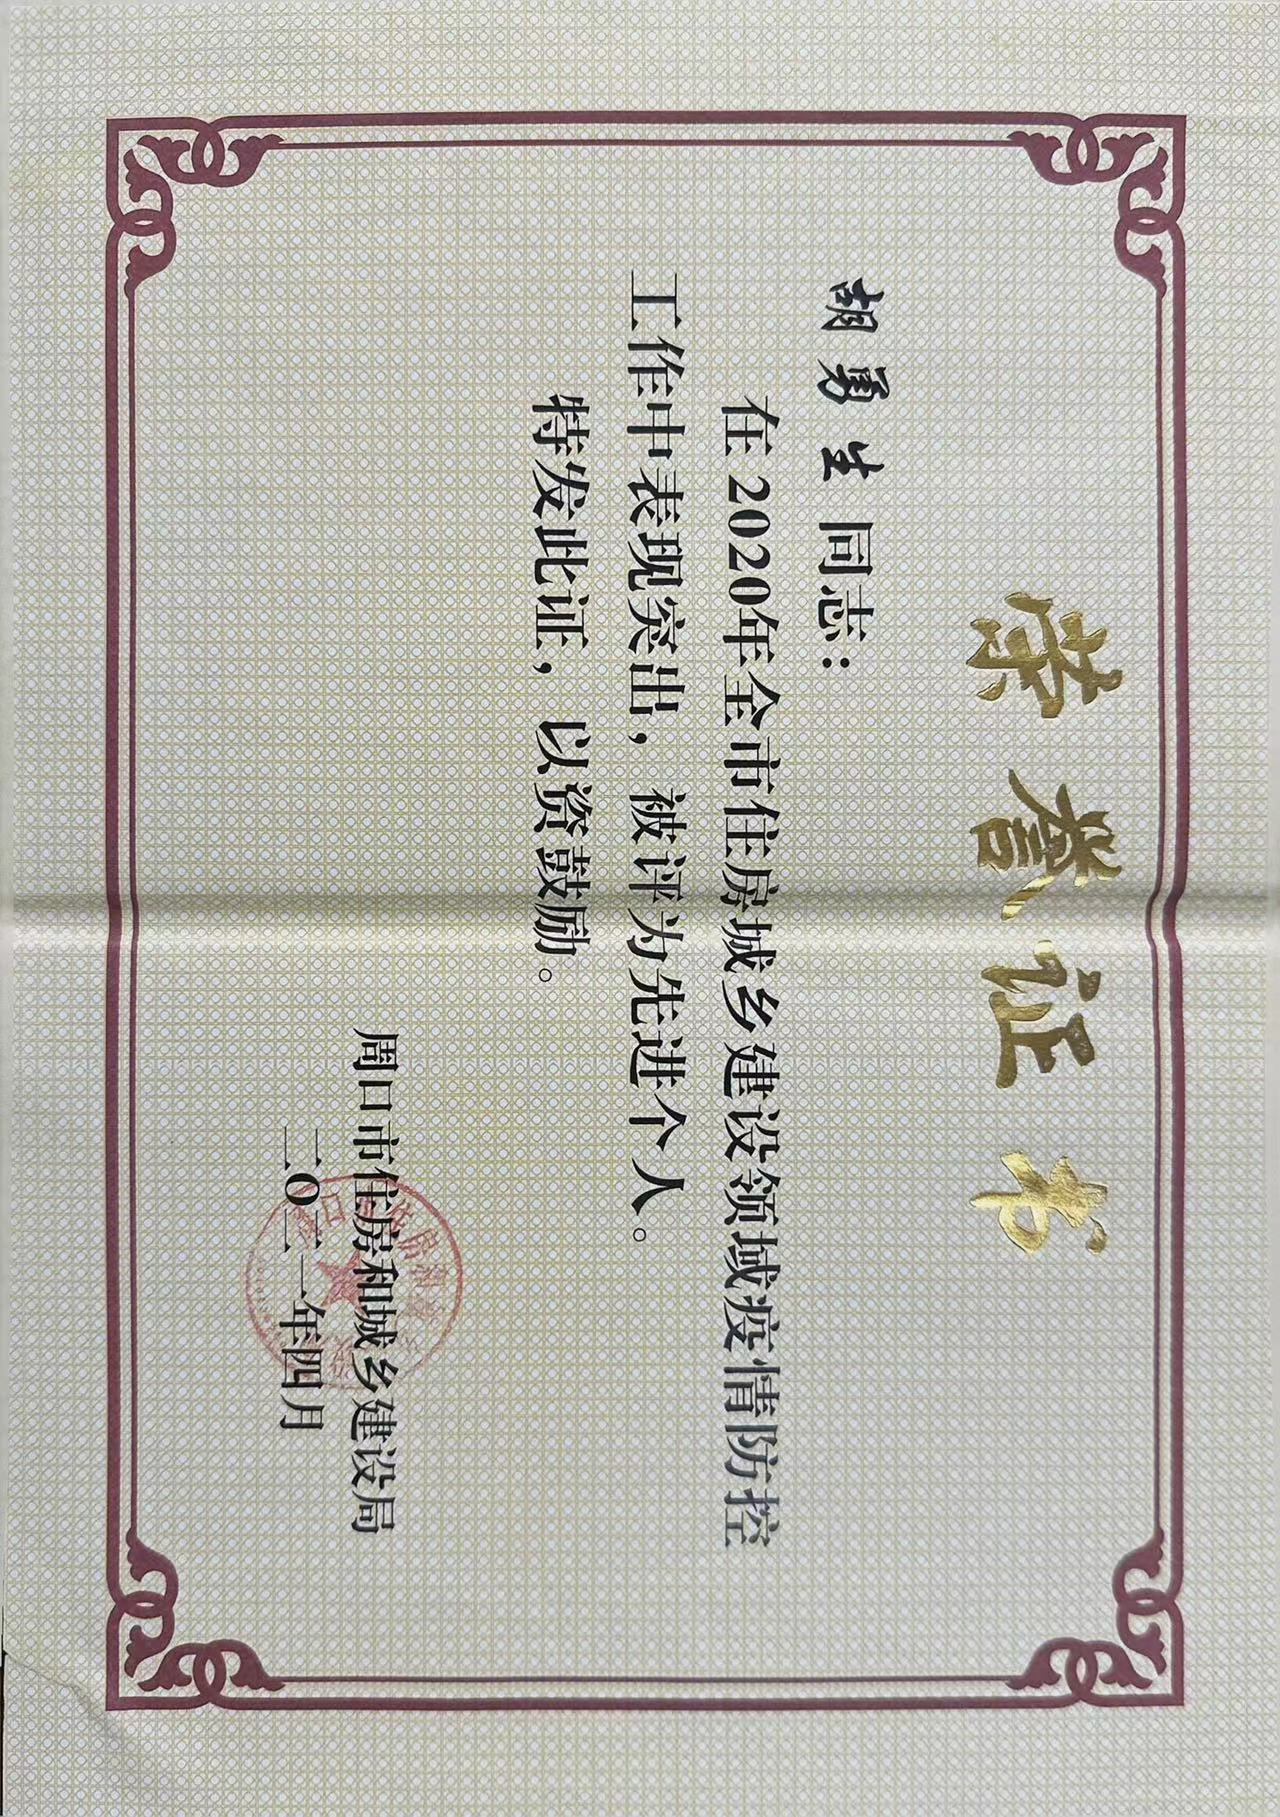 荣誉证书
胡勇生同志：
在2020年全市住房城乡建设领域疫情防控
工作中表现突出，被评为先进个人。
特发此证，以资鼓励。
周口市住房和城乡建设局
二〇二一年四月